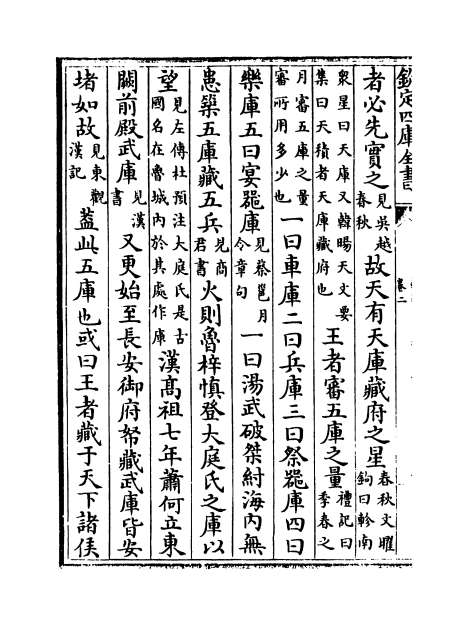 欽定四庫全書
卷二
者必先實之見吳越春秋故天有天庫藏府之星春秋文曜鉤曰軫南
衆星曰天庫又韓暘天文要集曰天積者天庫藏府也王者審五庫之量禮記曰季春之
月審五庫之量審所用多少也一曰車庫二曰兵庫三曰祭噐庫四曰
樂庫五曰宴噐庫見蔡邕月令章句一曰湯武破桀紂海内無
患築五庫藏五兵見商君書火則魯梓慎登大庭氏之庫以
望見左傳杜預注大庭氏是古國名在魯城内於其處作庫漢髙祖七年蕭何立東
闕前殿武庫見漢書又更始至長安御府帑藏武庫皆安
堵如故見東觀漢記蓋此五庫也或曰王者藏于天下諸侯